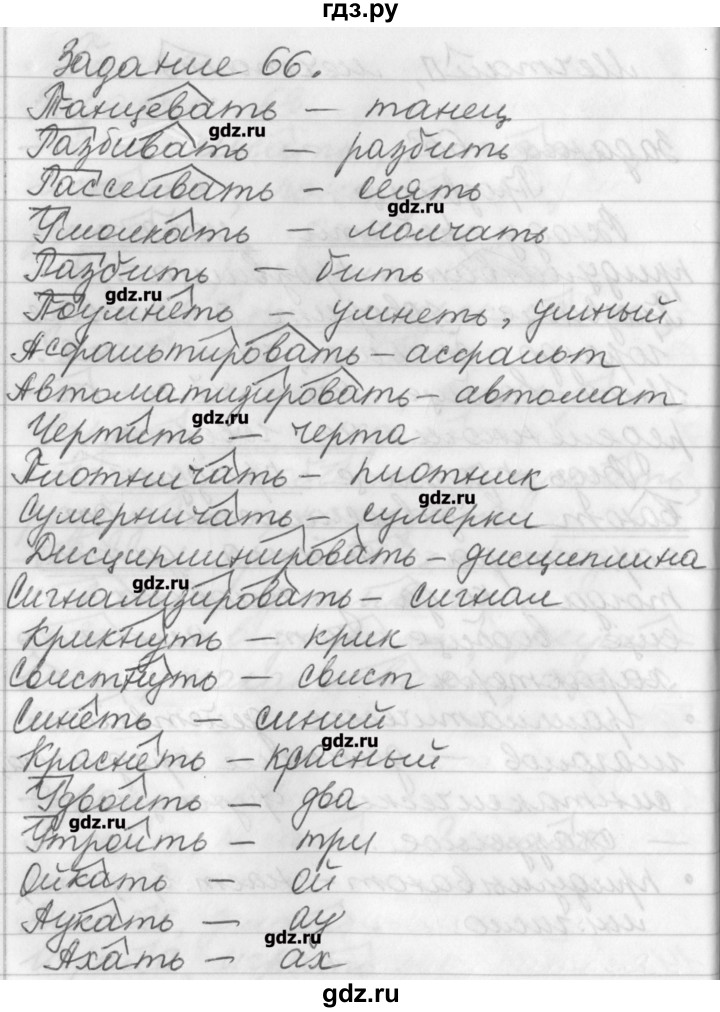 гдз.ру
Задание 66.
Танцевать – танец
gdz.ru
Разбивать – разбить
Рассеивать – сеять
gdz.ru
Умолкать – молчать
Разбить – бить
gdz.ru
Поумнеть – умнеть, умный
Асфальтировать – асфальт
Автоматизировать – автомат
gdz.ru
Чертить – черта
Плотничать – плотник
gdz.ru
Сумерничать – сумерки
Дисциплинировать – дисциплина
gdz.ru
Сигнализировать – сигнал
Крикнуть – крик
Свистнуть – свист
Синеть – синий
gdz.ru
Краснеть – красный
Удвоить – два
gdz.ru
Утроить – три
Ойкать – ой
Аукать – ау
gdz.ru
Ахать – ах
gdz.ru